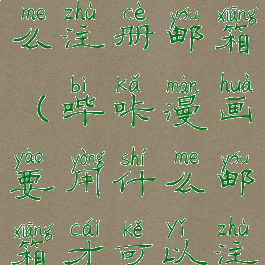 me zhù cè yóu xiāng
么注册邮箱
bì kǎ màn huà
(哔咔漫画
yào yòng shí me yóu
要用什么邮
xiāng cái kě yǐ zhù
箱才可以注